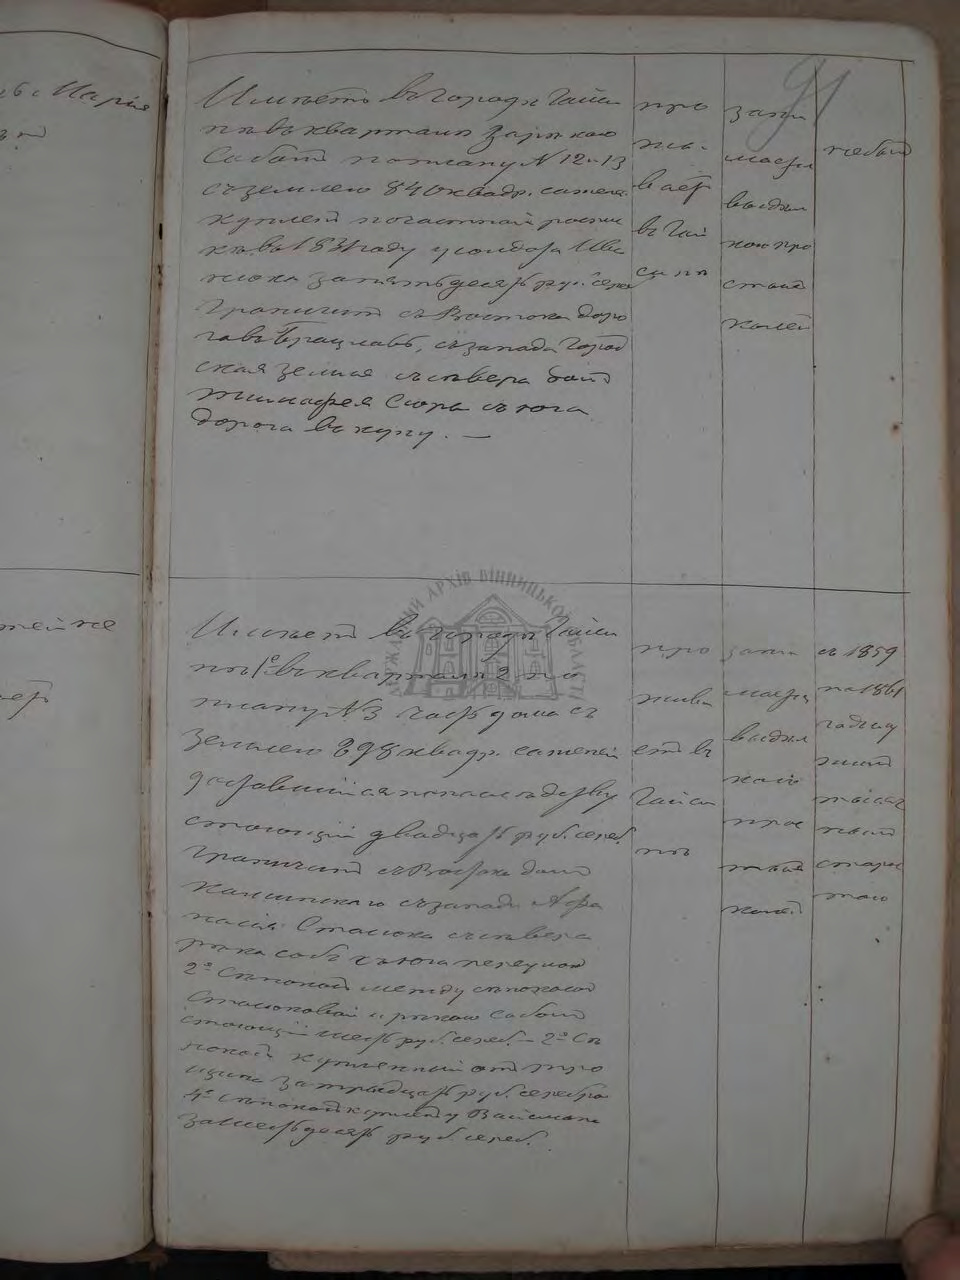 91
Имѣетъ въ городѣ Гайси
нѣ въ кварталѣ за рѣкою
Собъ по плану N 12 и 13
съ землею 840 квадр. сажень
куплен по частной росписи
въ 1831 году у солдата Ива
за пятьдесятъ руб. сереб
граничитъ съ Востока доро
га въ Брацлавъ, съ запада город
ская земля съ сѣвера домъ
Тимофея съ юга
дорога въ куну. —
про
жи-
ваетъ
въ Гай
синѣ
зани
мается
выдѣл
кою про
стыхъ
кожей
небылъ
Имѣетъ въ городѣ Гайси
нѣ 1е въ кварталѣ 2 по
плану N 3 часть дома съ
землею 298 квадр. саженей
доставшійся по наслѣдству
стоющій двадцать руб. сереб.
граничитъ съ Востока домъ
съ запада Афа
насія Стасюка съ сѣвера
рѣка собъ съ юга переулокъ
2е Сѣнокосъ между сѣнокосомъ
Стасюковой и рѣкою собомъ
стоющій шесть руб. сереб. — 2е Сѣ
нокосъ купленный отъ Тро
за тридцать руб. серебро
4е сѣнокосъ купленъ у
за шестьдесятъ руб. сереб.
про
жива
етъ въ
Гайси
нѣ
зани
мается
выдѣл
кою
прос
тыхъ
кожей
съ 1859
по 1861
годъ
старос
тою
ДЕРЖАВНИЙ АРХІВ ВІННИЦЬКОЇ ОБЛАСТІ